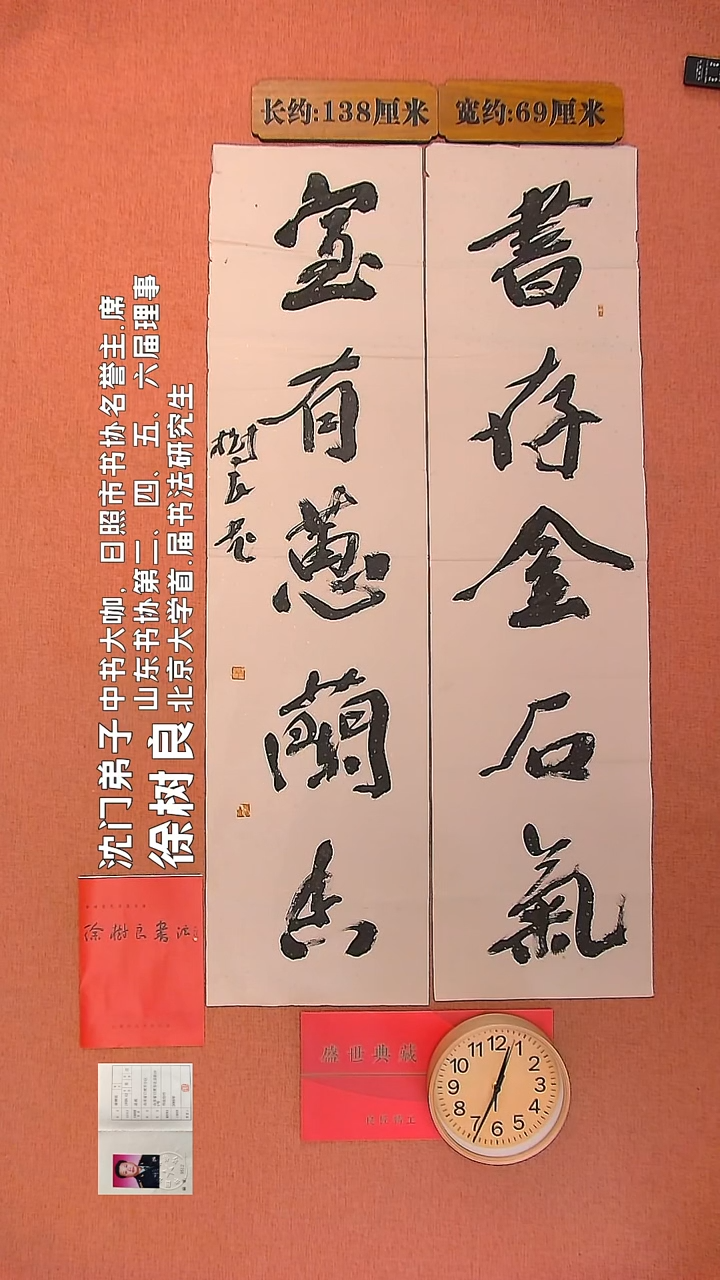 长约:138厘米
宽约:69厘米
書存金石氣
室有蕙蘭香
樹良书
沈门弟子 中书大咖,日照市书协名誉主.席
山东书协第二、四、五、六届理事
徐树良 北京大学首.届书法研究生
徐樹良書法
盛世典藏
12
1
2
3
4
5
6
7
8
9
10
11